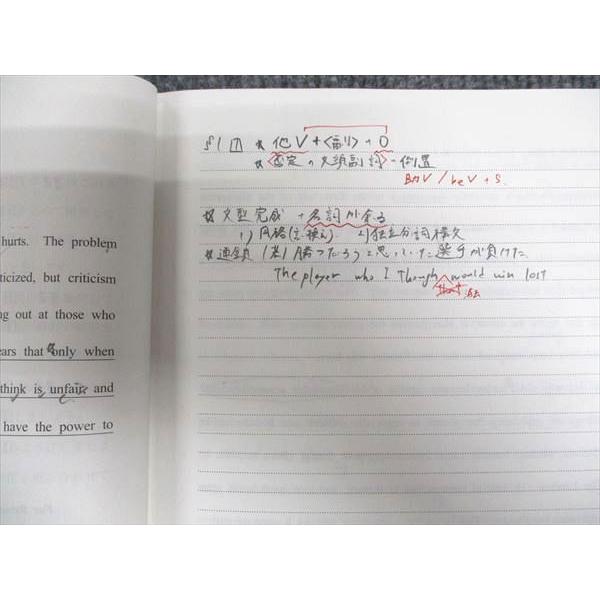 hurts. The problem
ticized, but criticism
ng out at those who
ears that only when
think is unfair and
have the power to
§1 1 * 他V+<副>+O
* <否定の文頭副詞>-倒置
助V/be V+S
* 文型完成 + 名詞が余る
1) 同格(言い換え) 2) 独立分詞構文
* 連鎖 (差) 勝つだろうと思っていた選手が負けた
The player who I though would win lost
that